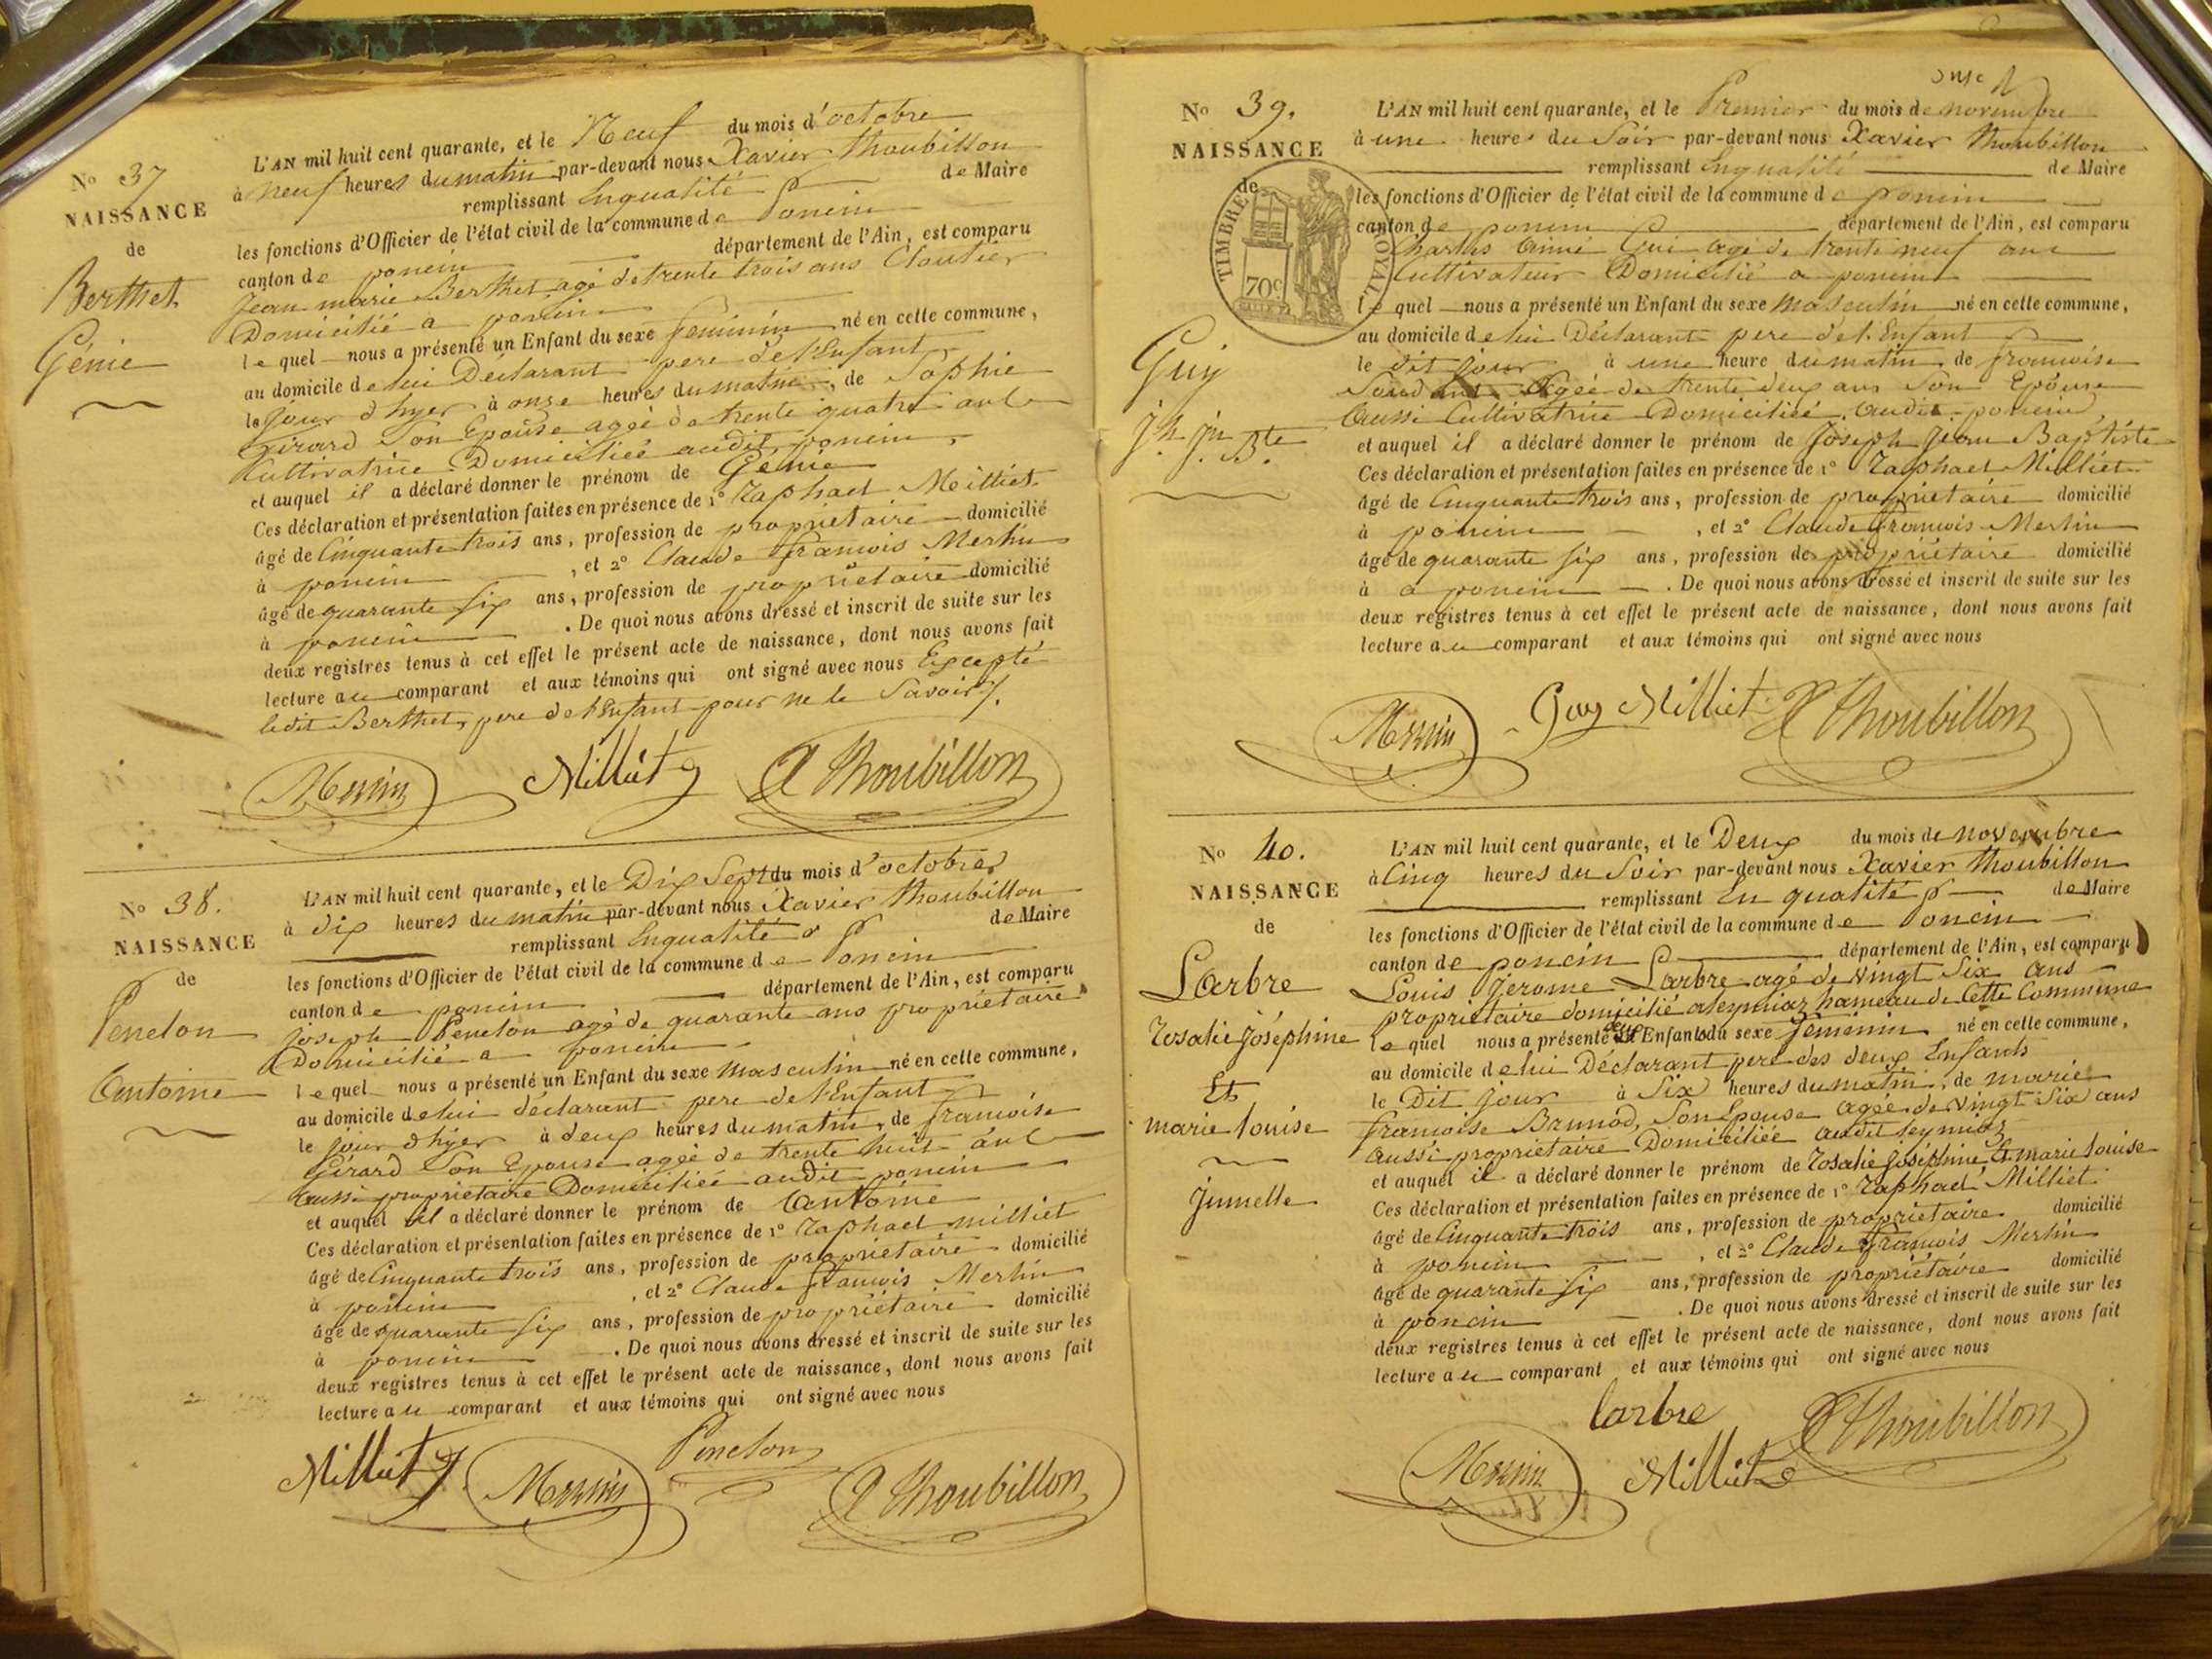 No 37
NAISSANCE
de
Berthet
Génie
L'AN mil huit cent quarante, et le Neuf du mois d'octobre
à Neuf heures du matin par-devant nous Xavier Thoubillon
remplissant Enqualité de Maire
les fonctions d'Officier de l'état civil de la commune de Poncin
canton de poncin département de l'Ain, est comparu
Jean marie Berthet agé de trente trois ans Cloutier
Domicilié a poncin
lequel nous a présenté un Enfant du sexe feminin né en cette commune,
au domicile de lui Déclarant pere de l'Enfant
le Jour d'hyer à onze heures du matin, de Sophie
Girard Son Epouse agée de trente quatre ans
Cultivatrice Domiciliée audit poncin
et auquel il a déclaré donner le prénom de Génie
Ces déclaration et présentation faites en présence de 1° Raphael Milliet
âgé de Cinquante trois ans, profession de propriétaire domicilié
à poncin , et 2° Claude francois Merlin
âgé de quarante six ans, profession de propriétaire domicilié
à poncin . De quoi nous avons dressé et inscrit de suite sur les
deux registres tenus à cet effet le présent acte de naissance, dont nous avons fait
lecture au comparant et aux témoins qui ont signé avec nous Excepté
ledit Berthet, pere de l'Enfant pour ne le Savoir
Merlin Milliet X Thoubillon
No 38.
NAISSANCE
de
Penelon
Antoine
L'AN mil huit cent quarante, et le Dix Sept du mois d'octobre
à dix heures du matin par-devant nous Xavier Thoubillon
remplissant Enqualité de Maire
les fonctions d'Officier de l'état civil de la commune de Poncin
canton de poncin département de l'Ain, est comparu
Joseph Penelon agé de quarante ans propriétaire
Domicilié a poncin
lequel nous a présenté un Enfant du sexe masculin né en cette commune,
au domicile de lui déclarant pere de l'Enfant
le jour d'hyer à deux heures du matin, de francoise
Girard Son Epouse agée de trente huit ans
aussi propriétaire Domiciliée audit poncin
et auquel il a déclaré donner le prénom de Antoine
Ces déclaration et présentation faites en présence de 1° Raphael milliet
âgé de Cinquante trois ans, profession de propriétaire domicilié
à poncin , et 2° Claude francois Merlin
âgé de quarante six ans, profession de propriétaire domicilié
à poncin . De quoi nous avons dressé et inscrit de suite sur les
deux registres tenus à cet effet le présent acte de naissance, dont nous avons fait
lecture au comparant et aux témoins qui ont signé avec nous
Milliet Merlin Penelon X Thoubillon
No 39.
NAISSANCE
de
TIMBRE ROYAL
70c
Guy
Jh. Jn. Bte.
L'AN mil huit cent quarante, et le Premier du mois de novembre
à une heure du Soir par-devant nous Xavier Thoubillon
remplissant Enqualité de Maire
les fonctions d'Officier de l'état civil de la commune de poncin
canton de poncin département de l'Ain, est comparu
Charles Aimé Gui agé de trente neuf ans
Cultivateur Domicilié a poncin
lequel nous a présenté un Enfant du sexe masculin né en cette commune,
au domicile de lui Déclarant pere de l'Enfant
le dit jour à une heure du matin, de francoise
Agée de trente deux ans Son Epouse
aussi Cultivatrice Domiciliée audit poncin
et auquel il a déclaré donner le prénom de Joseph Jean Baptiste
Ces déclaration et présentation faites en présence de 1° Raphael Milliet
âgé de Cinquante trois ans, profession de propriétaire domicilié
à poncin , et 2° Claude francois Merlin
âgé de quarante six ans, profession de propriétaire domicilié
à a poncin . De quoi nous avons dressé et inscrit de suite sur les
deux registres tenus à cet effet le présent acte de naissance, dont nous avons fait
lecture au comparant et aux témoins qui ont signé avec nous
Merlin Guy Milliet X Thoubillon
No 40.
NAISSANCE
de
Larbre
Rosalie Joséphine
Et
marie louise
Jumelle
L'AN mil huit cent quarante, et le Deux du mois de novembre
à Cinq heures du Soir par-devant nous Xavier Thoubillon
remplissant En qualité de Maire
les fonctions d'Officier de l'état civil de la commune de Poncin
canton de poncin département de l'Ain, est comparu
Louis Jerome Larbre agé de vingt Six ans
propriétaire domicilié a leymiaz hameau de Cette Commune
lequel nous a présenté deux Enfants du sexe féminin né en cette commune,
au domicile de lui Déclarant pere des deux Enfants
le Dit jour à Six heures du matin, de marie
francoise Brunod, Son Epouse agée de vingt Six ans
aussi propriétaire Domiciliée audit leymiaz
et auquel il a déclaré donner le prénom de Rosalie Joséphine Et marie louise
Ces déclaration et présentation faites en présence de 1° Raphael Milliet
âgé de Cinquante trois ans, profession de propriétaire domicilié
à poncin , et 2° Claude francois Merlin
âgé de quarante six ans, profession de propriétaire domicilié
à poncin . De quoi nous avons dressé et inscrit de suite sur les
deux registres tenus à cet effet le présent acte de naissance, dont nous avons fait
lecture au comparant et aux témoins qui ont signé avec nous
larbre X Thoubillon
Merlin Milliet